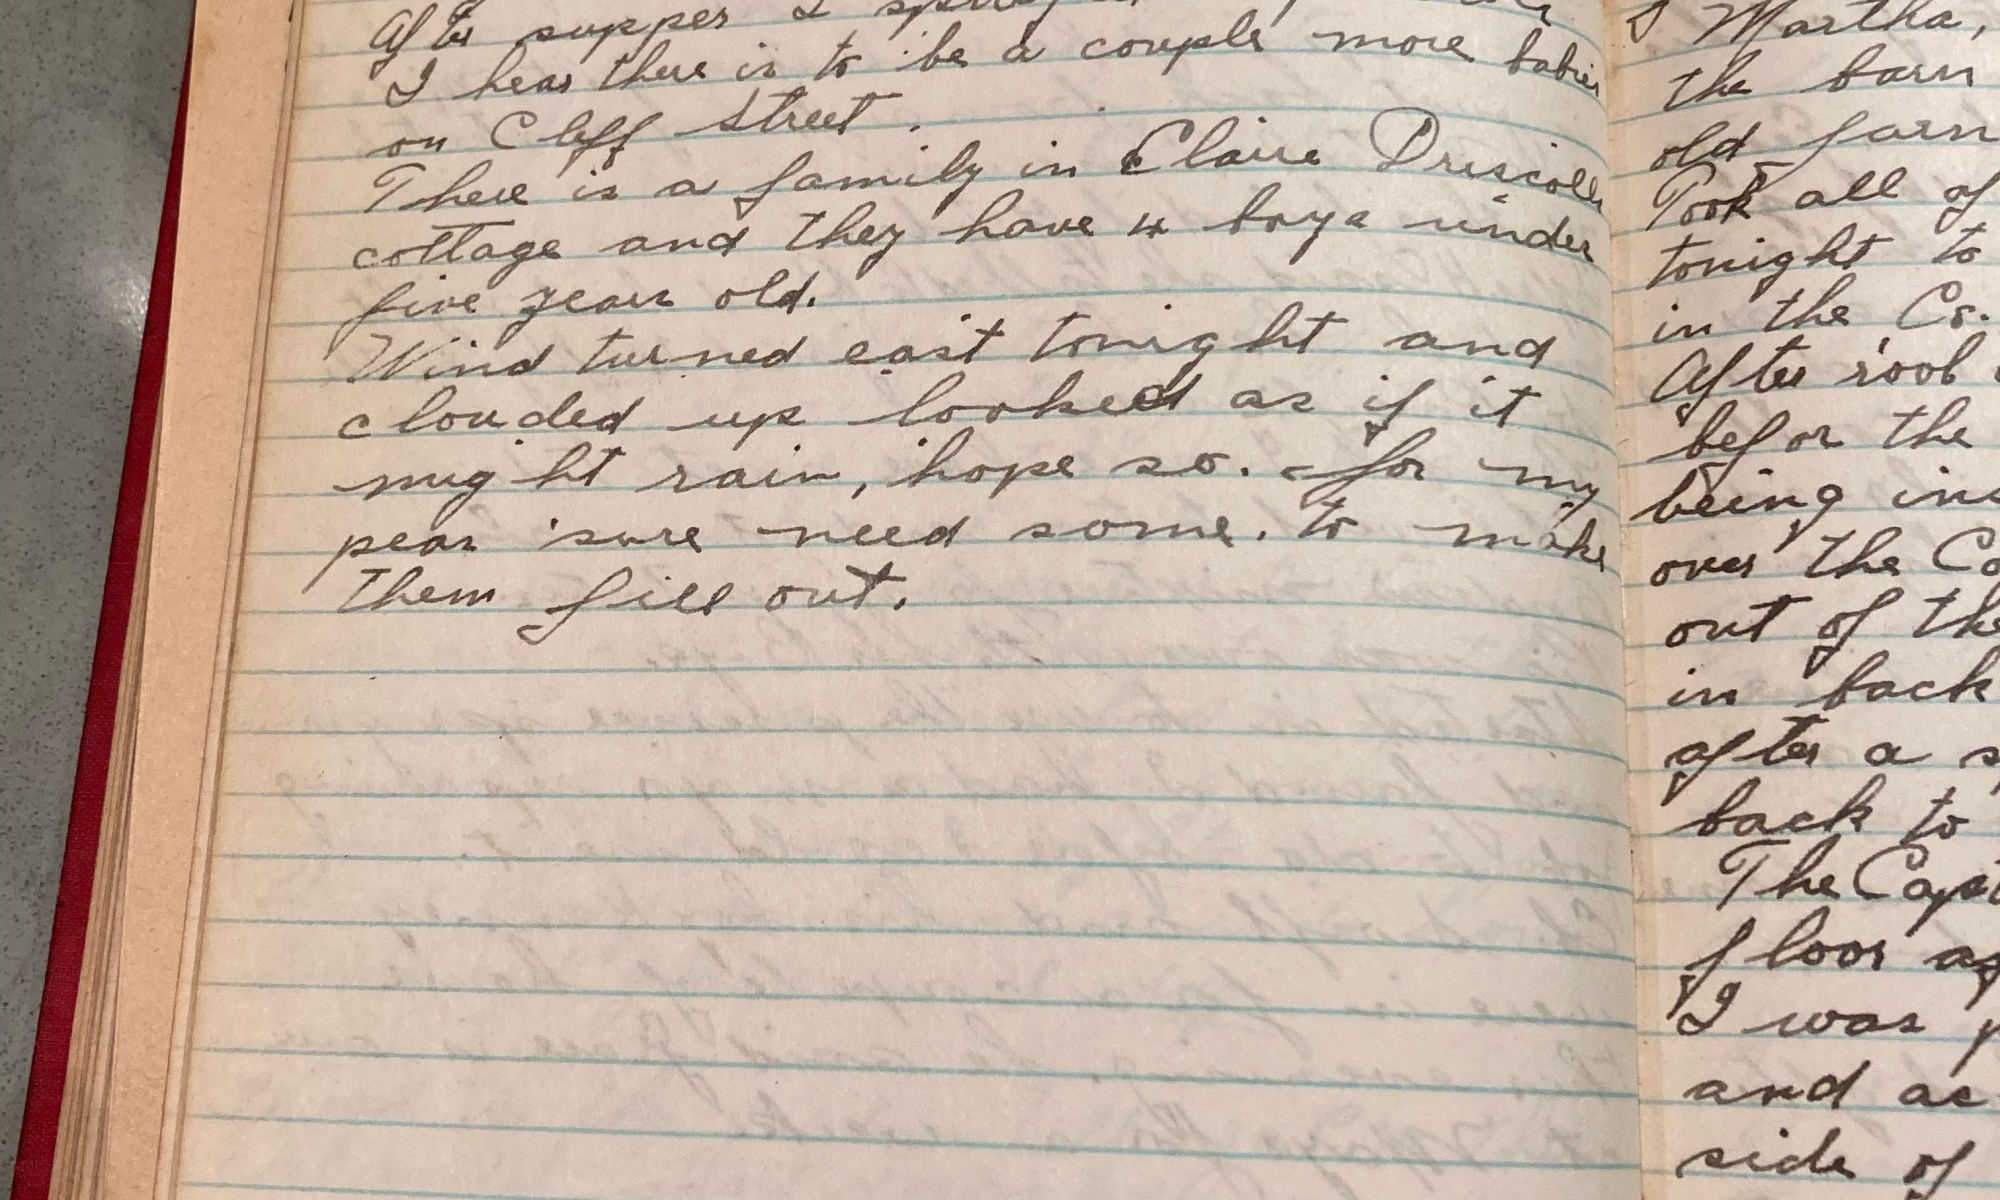 After supper I
I hear there is to be a couple more babies
on Cliff Street.
There is a family in Claire Driscolls
cottage and they have 4 boys under
five years old.
Wind turned east tonight and
clouded up looked as if it
might rain, hope so. for my
pears sure need some. to make
them fill out.
Martha,
the barn
old
Took all of
tonight to
in the Co.
After
befor the
being
over the
out of the
in back
after a
back to
The
floor
I was
and as
side of